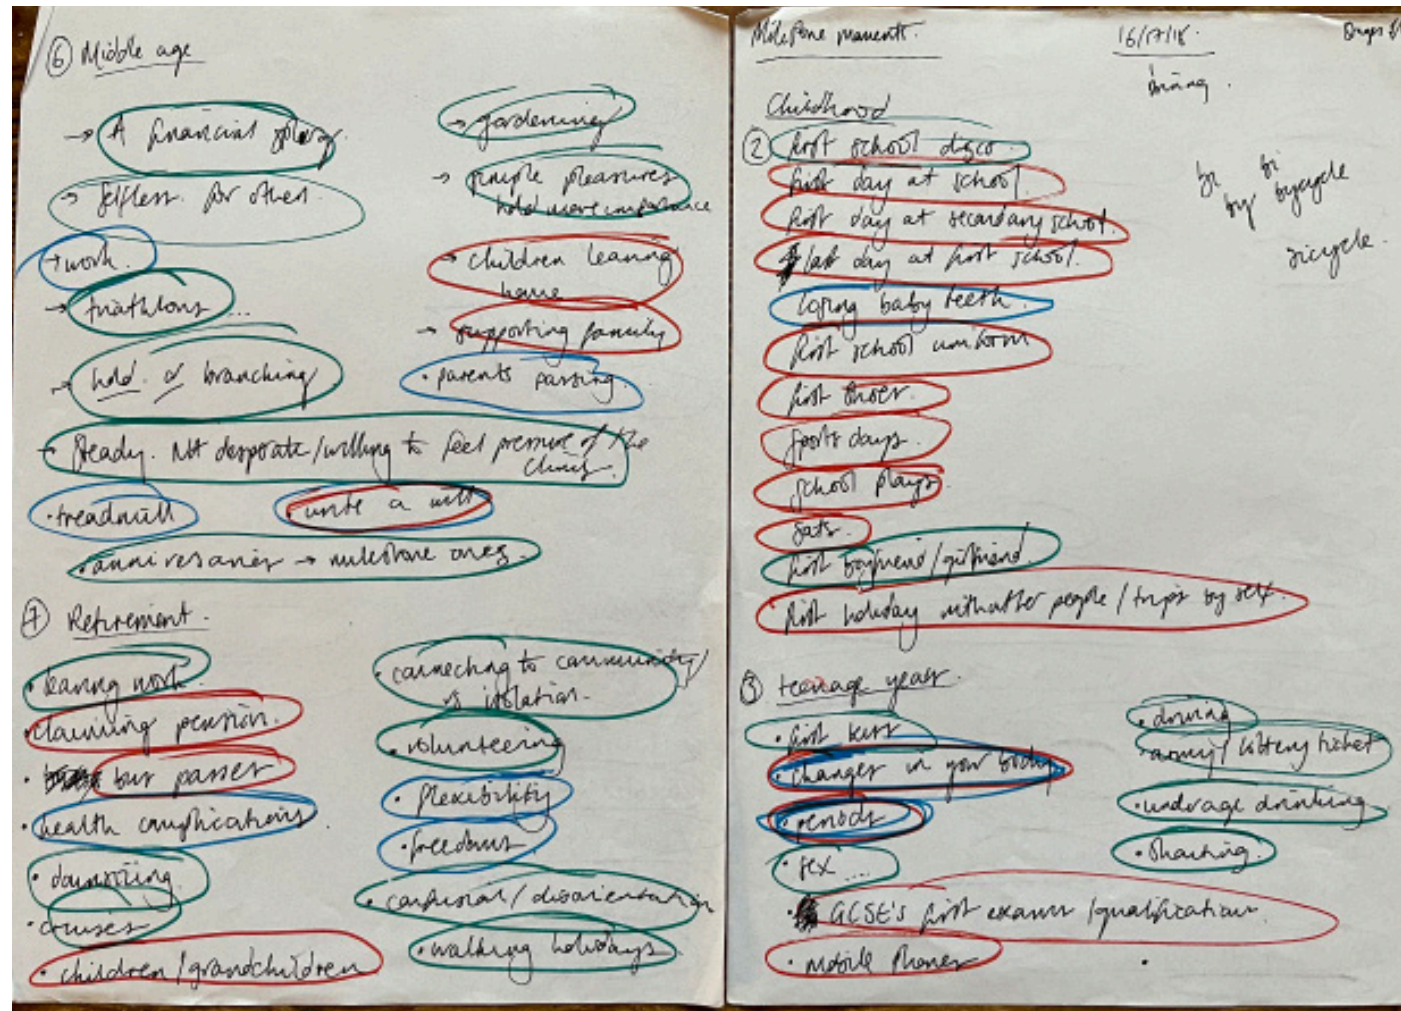 ⑥ Middle age
→ A financial splurg
→ Selfless. for others.
→ work.
→ triathlons ...
→ hold & branching
→ Steady. Not desperate/willing to feel pressure of the
climb.
• treadmill
• write a will
• anniversaries → milestone ones.
→ gardening
→ simple pleasures
hold more importance
→ children leaving
home
→ supporting family
• parents passing.
⑦ Retirement.
• leaving work.
• claiming pension.
• bus passes
• health complications
• downsizing.
• cruises
• children/grandchildren
• connecting to community/
vs isolation.
• volunteering
• flexibility
• freedoms
• confusion/disorientation
• walking holidays.
Milestone moments.
16/17/18.
Childhood
② first school disco.
first day at school.
first day at secondary school.
last day at first school.
losing baby teeth.
first school uniform
first shoes.
sports days.
school plays.
sats.
first boyfriend/girlfriend.
first holiday with other people / trips by self.
bi
bi
by
bycycle
bicycle.
③ teenage years.
• first kiss
• changes in your body
• periods
• sex ....
• GCSE's first exams /qualifications.
• mobile phones
• driving
• army/ lottery ticket
• underage drinking
• smoking.
•